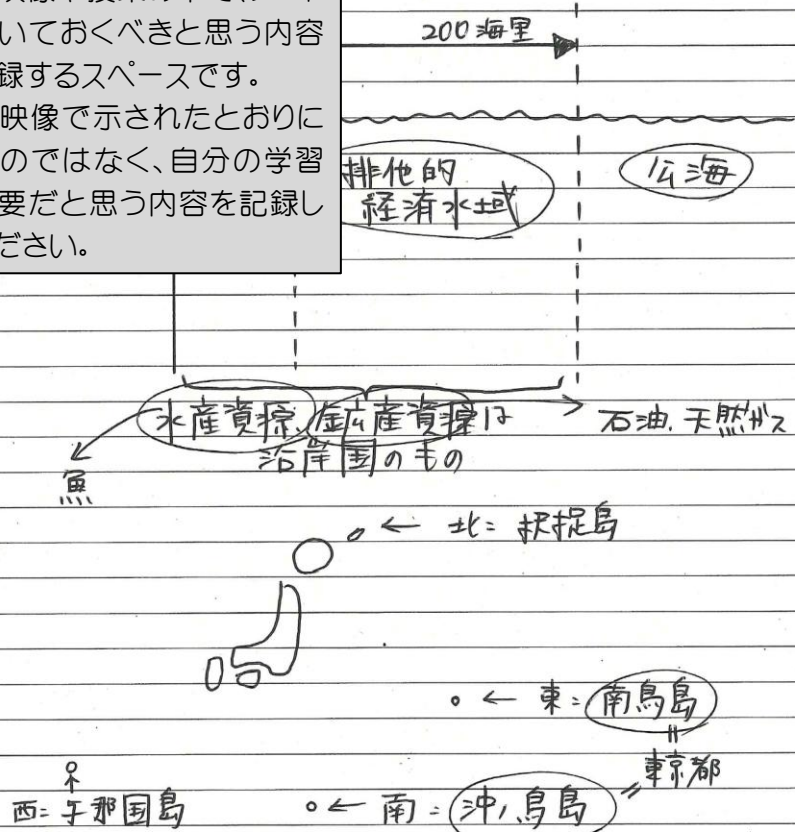 いておくべきと思う内容
録するスペースです。
映像で示されたとおりに
のではなく、自分の学習
要だと思う内容を記録し
ださい。
200海里
排他的
経済水域
公海
水産資源、鉱産資源は → 石油、天然ガス
沿岸国のもの
魚
← 北=択捉島
← 東=南鳥島
=
東京都
西=与那国島
← 南=沖ノ鳥島 =